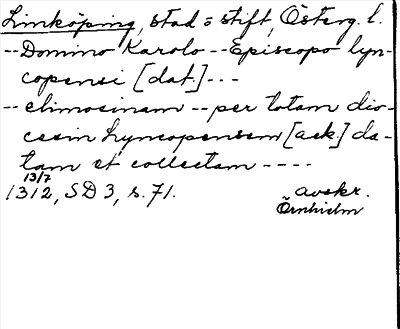 Linköping, stad o stift, Österg. l.
-- Domino Karolo -- Episcopo lyn-
copensi [dat.] ---
-- elimosinam -- per totam dio-
cesin Lyncopensem [ack.] da-
tam et collectam ----
13/7
1312, SD 3, s. 71.
avskr.
Örnhielm